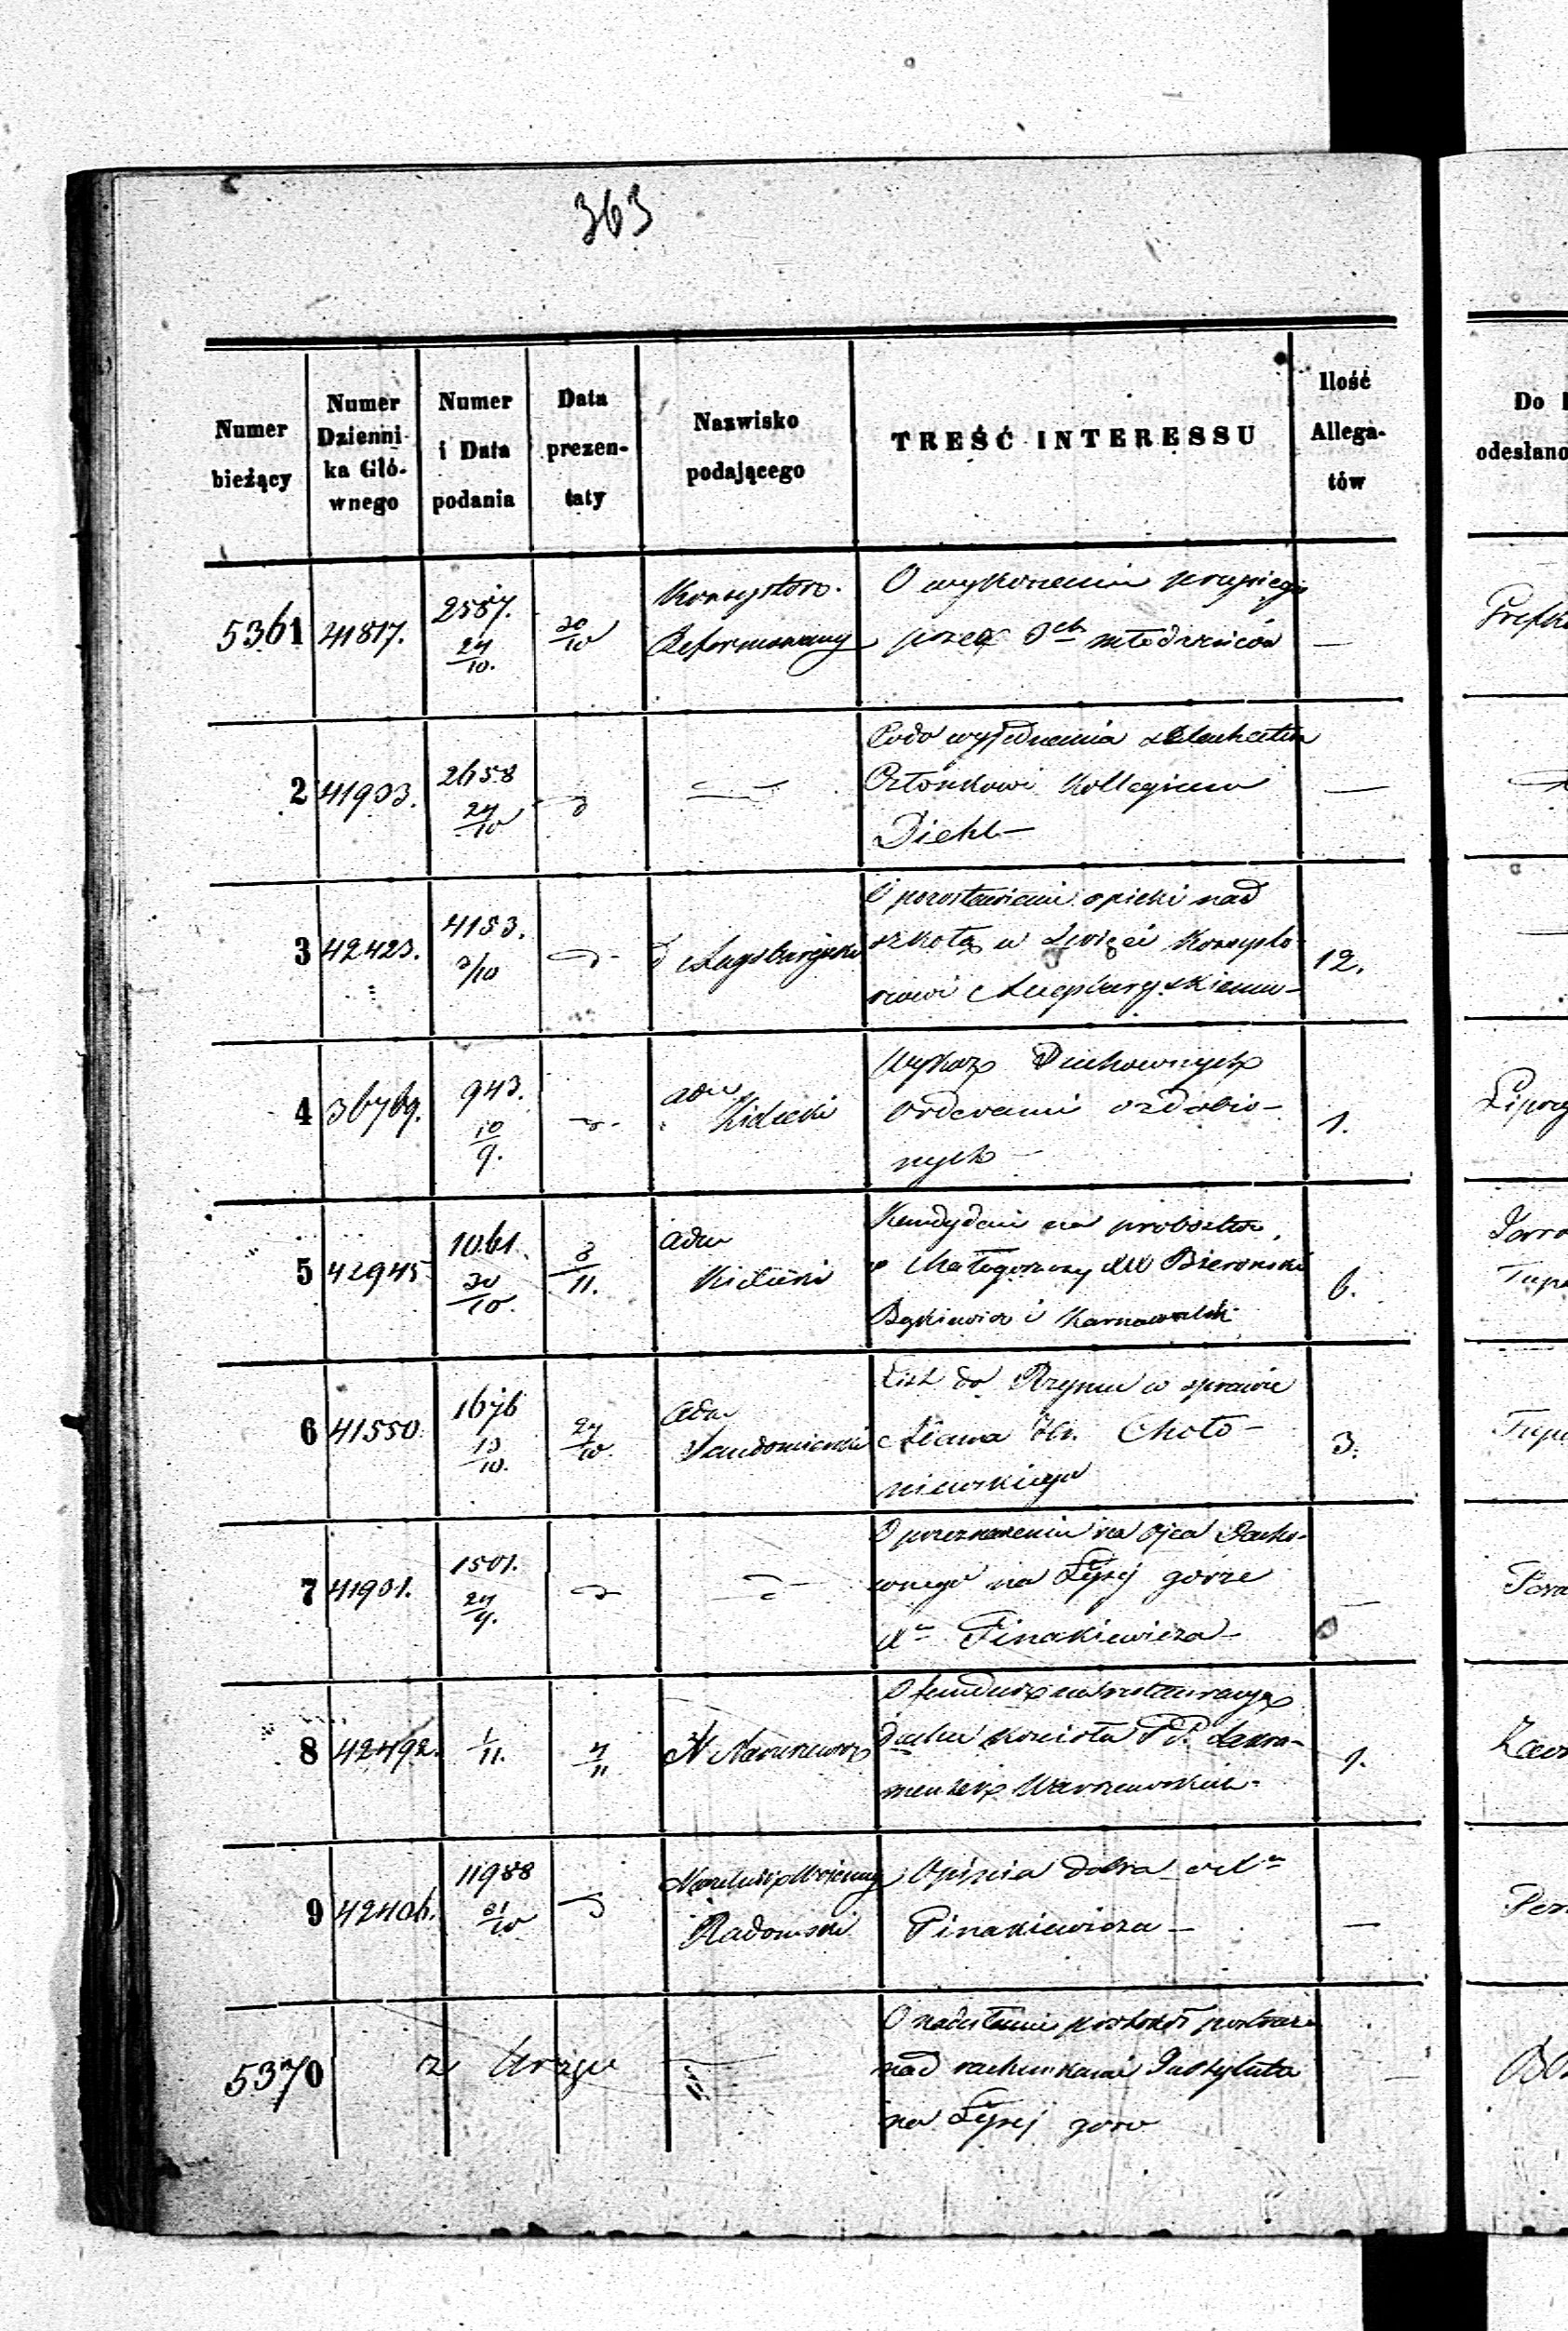 363
Numer bieżący
Numer Dzienni- ka Głó- wnego
Numer i Data podania
Data prezen- taty
Nazwisko podającego
TREŚĆ INTERESSU
Ilość Allega- tów
Do
odesłano
5361 41817. 2587. 24/10. 30/10
Konsystorz
Reformowany
O wykonaniu przysięgi
przez 3ch młodzieńców
—
2 41903. 2658 24/10
Człónkowi Kollegium
Diehl —
—
3 42423. 4153. 3/10
Augsburgski
O pozostawieniu opieki nad
szkołą w Konsysto-
rzowi Augsburgskiemu —
12.
4 36769. 943. 10/9.
adm
Kielecki
Wykaz Duchownych
orderami ozdobio-
nych —
1.
5 42945 1061. 30/10. 3/11.
adm
Kielecki
Kandydaci na probostwo
w Małogoszczy XX
Bąkiewicz i Karnawalski
6.
6 41550. 1676 13/10. 27/10.
Adm
Sandomierski
List do Rzymu w sprawie
Hr. Choło-
niewskiego
3.
7 41901. 1501. 27/9.
O przeznaczeniu na Ojca Ducho-
wnego na Łysej górze
Xa Pinakiewicza —
—
8 42492. 1/11. 4/11
X
O fundusz na restauracyę
dachu kościoła PP. Sakra-
mentek Warszawskich
1.
9 42406. 11988 31/10
Naczelnik Wojenny
Radomski
Opinia dobra o Xu
Pinakiewicza —
—
5370 z Urzędu
O nadesłanie
nad rachunkami Instytutu
na Łysej gorze